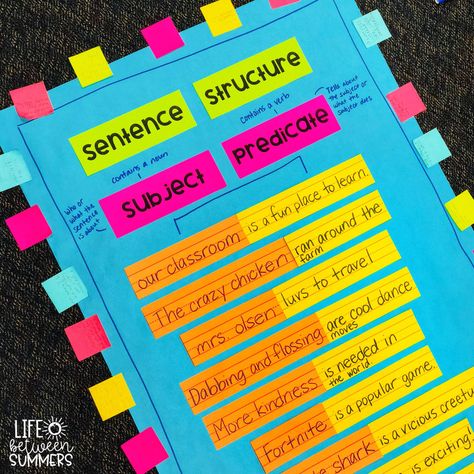 Sentence Structure
contains a noun
contains a verb
Tells about
the subject or
what the
subject does
who or
what the
sentence
is about
Subject Predicate
our classroom is a fun place to learn.
The crazy chicken ran around the
farm
mrs. olsen luvs to travel
Dabbing and flossing are cool dance
moves
More kindness is needed in
the world
Fortnite is a popular game.
shark is a vicious creetu
is exciting!
LIFE
between
SUMMERS